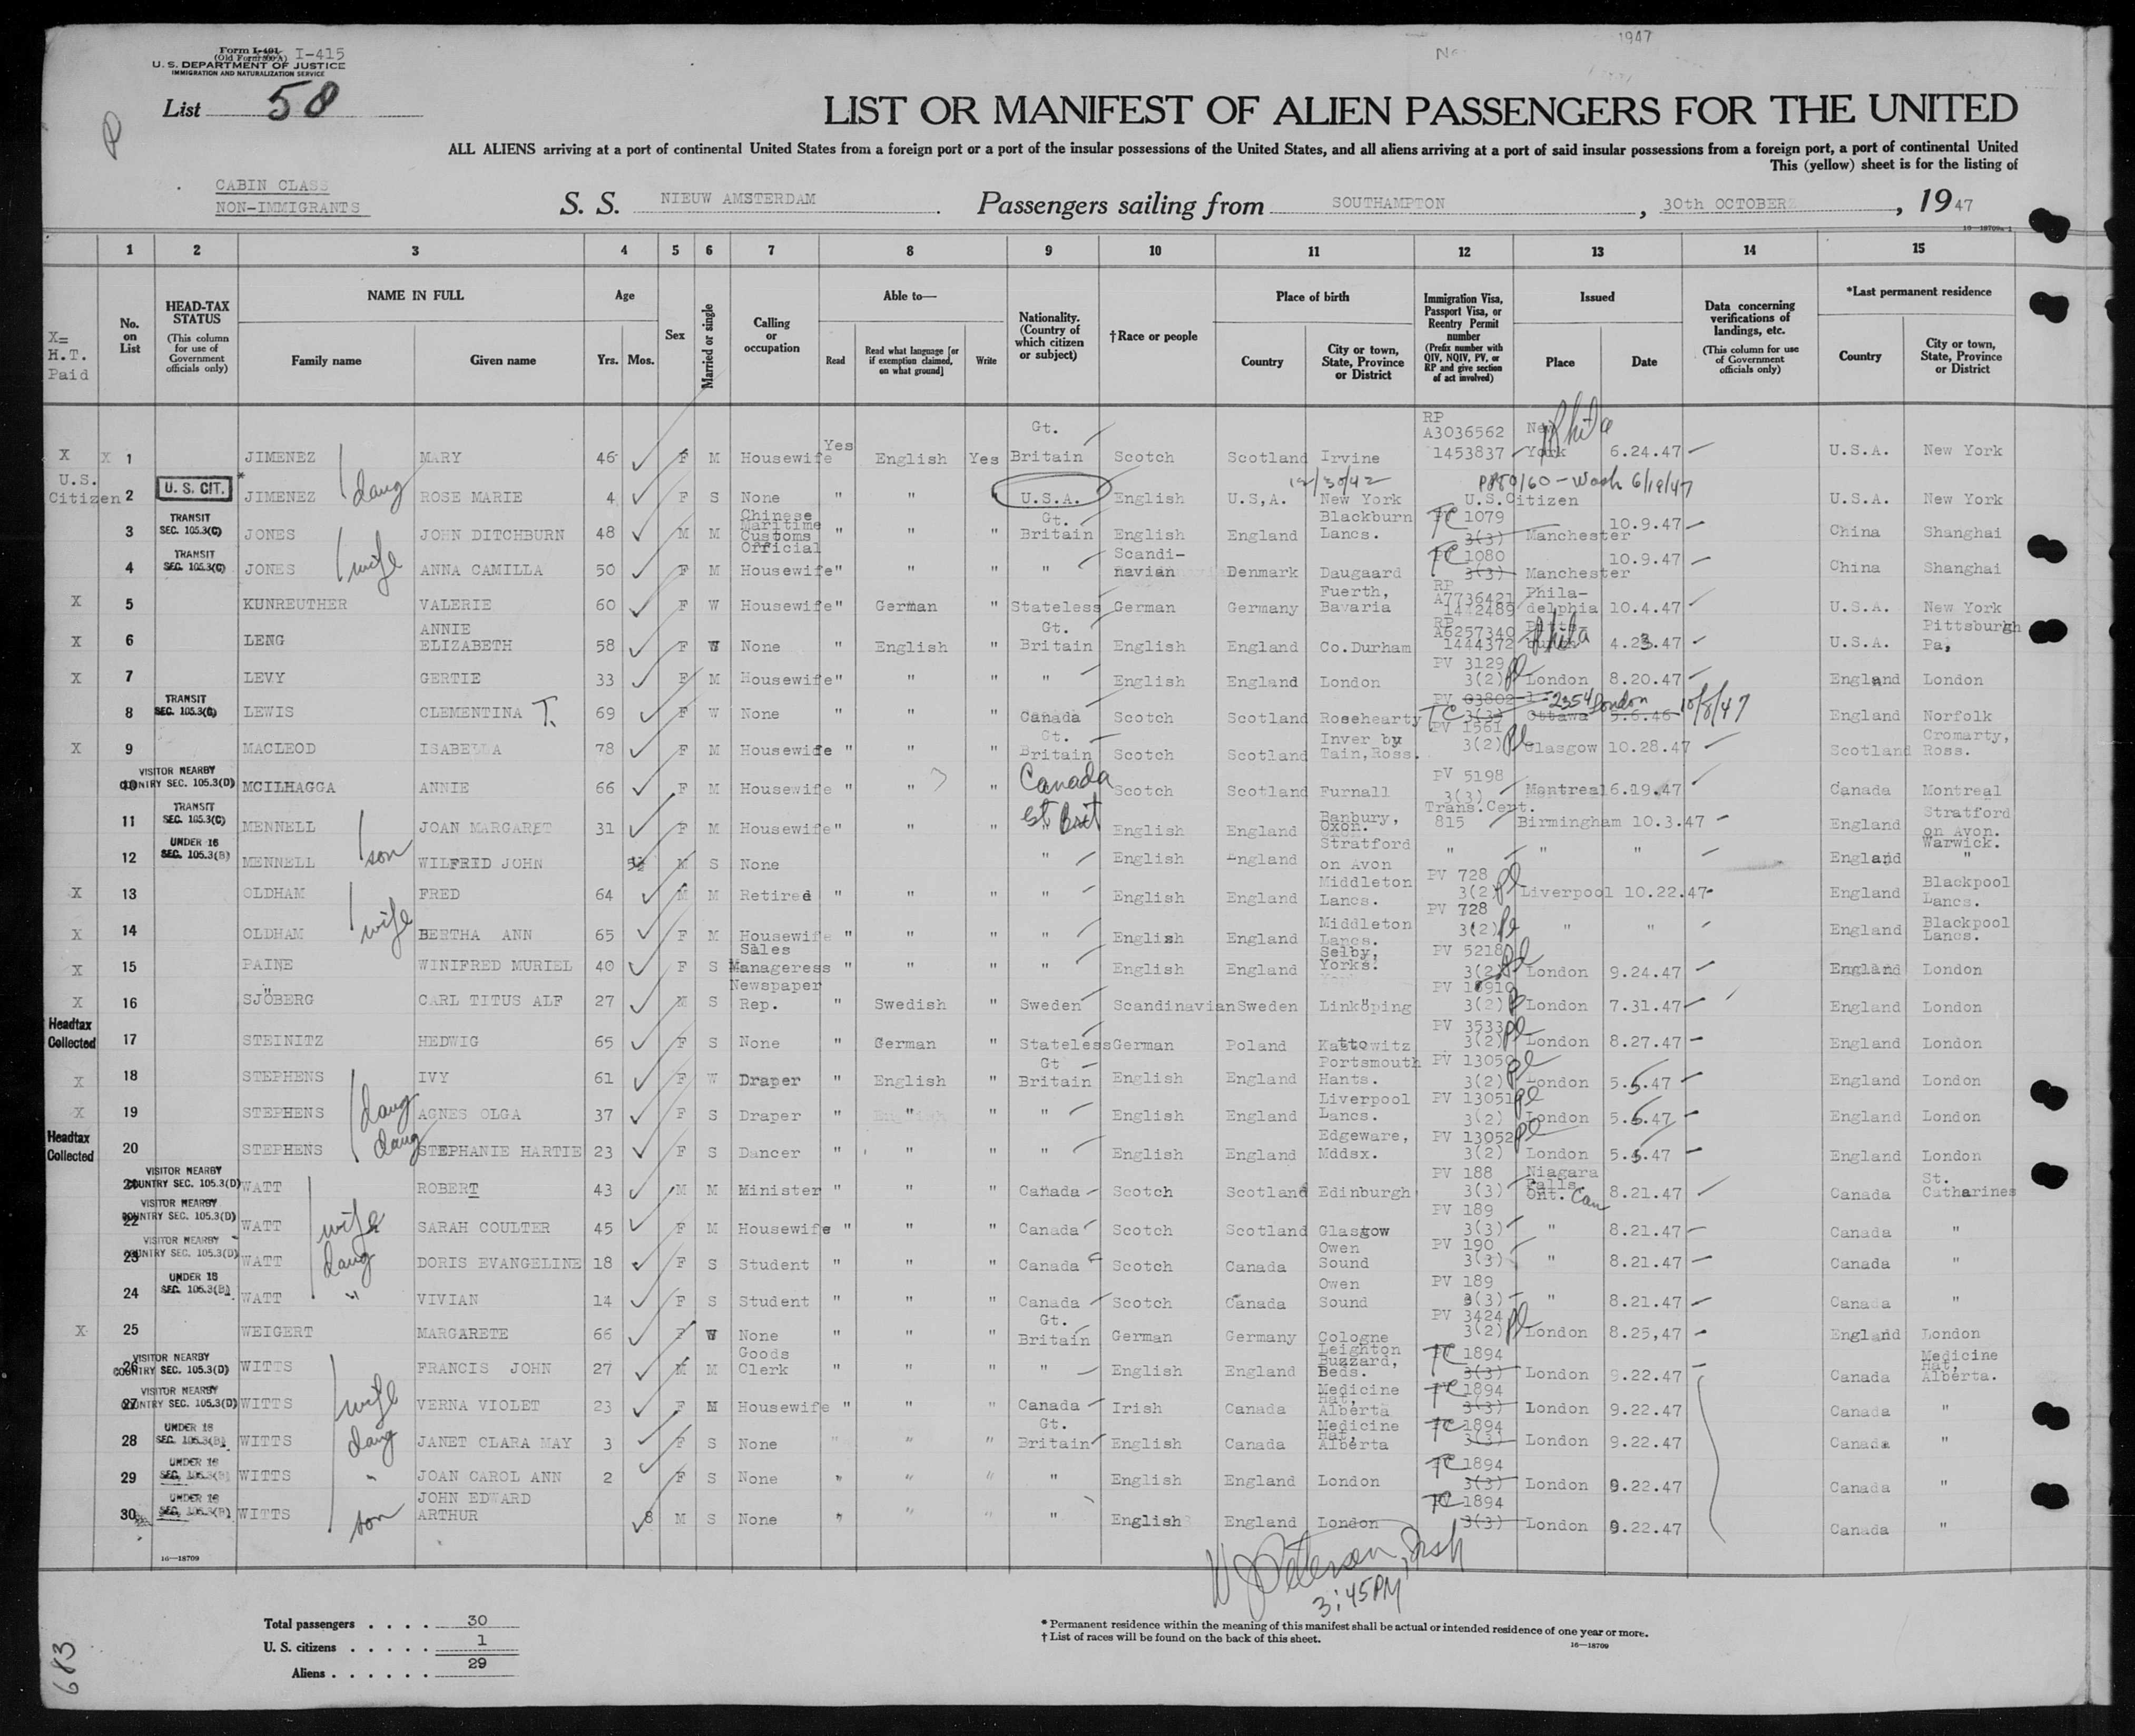 Form I-401 I-415
(Old Form 500 A)
U. S. DEPARTMENT OF JUSTICE
IMMIGRATION AND NATURALIZATION SERVICE
1947
List 58
P
LIST OR MANIFEST OF ALIEN PASSENGERS FOR THE UNITED
ALL ALIENS arriving at a port of continental United States from a foreign port or a port of the insular possessions of the United States, and all aliens arriving at a port of said insular possessions from a foreign port, a port of continental United
This (yellow) sheet is for the listing of
CABIN CLASS
NON-IMMIGRANTS
S. S. NIEUW AMSTERDAM Passengers sailing from SOUTHAMPTON, 30th OCTOBER, 1947
1 2 3 4 5 6 7 8 9 10 11 12 13 14 15
X= H.T. Paid
No. on List
HEAD-TAX STATUS (This column for use of Government officials only)
NAME IN FULL Family name Given name
Age Yrs. Mos.
Sex
Married or single
Calling or occupation
Able to— Read Read what language [or if exemption claimed, on what ground] Write
Nationality. (Country of which citizen or subject)
†Race or people
Place of birth Country City or town, State, Province or District
Immigration Visa, Passport Visa, or Reentry Permit number (Prefix number with QIV, NQIV, PV, or RP and give section of act involved)
Issued Place Date
Data concerning verifications of landings, etc. (This column for use of Government officials only)
*Last permanent residence Country City or town, State, Province or District
X X 1 JIMENEZ MARY 46 F M Housewife Yes English Yes Gt. Britain Scotch Scotland Irvine RP A3036562 1453837 New York Phila 6.24.47 U.S.A. New York
U.S. Citizen 2 U. S. CIT. * JIMENEZ daug ROSE MARIE 4 F S None " " " U.S.A. English U.S,A. 12/30/42 New York PP80160 - Wash 6/19/47 U.S.Citizen U.S.A. New York
3 TRANSIT SEC. 105.3(C) JONES JOHN DITCHBURN 48 M M Chinese Maritime Customs Official " " " Gt. Britain English England Blackburn Lancs. TC 1079 3(3) Manchester 10.9.47 China Shanghai
4 TRANSIT SEC. 105.3(C) JONES wife ANNA CAMILLA 50 F M Housewife " " " " Scandinavian Denmark Daugaard TC 1080 3(3) Manchester 10.9.47 China Shanghai
X 5 KUNREUTHER VALERIE 60 F W Housewife " German " Stateless German Germany Fuerth, Bavaria RP A7736421 1412489 Phila-delphia 10.4.47 U.S.A. New York
X 6 LENG ANNIE ELIZABETH 58 F W None " English " Gt. Britain English England Co.Durham RP A6257340 1444372 Phila 4.23.47 U.S.A. Pittsburgh Pa,
X 7 LEVY GERTIE 33 F M Housewife " " " " English England London PV 3129 3(2) London 8.20.47 England London
8 TRANSIT SEC. 105.3(C) LEWIS CLEMENTINA T. 69 F W None " " " Canada Scotch Scotland Rosehearty PV 03802 TC 3(3) 2354 London Ottawa 5.6.46 10/8/47 England Norfolk
X 9 MACLEOD ISABELLA 78 F M Housewife " " " Gt. Britain Scotch Scotland Inver by Tain,Ross. PV 1561 3(2) Glasgow 10.28.47 Scotland Cromarty, Ross.
10 VISITOR NEARBY COUNTRY SEC. 105.3(D) MCILHAGGA ANNIE 66 F M Housewife " " " Canada Scotch Scotland Furnall PV 5198 3(3) Montreal 6.19.47 Canada Montreal
11 TRANSIT SEC. 105.3(C) MENNELL JOAN MARGARET 31 F M Housewife " " " Gt Brit English England Banbury, Oxon. Trans.Cert. 815 Birmingham 10.3.47 England Stratford on Avon. Warwick.
12 UNDER 16 SEC. 105.3(B) MENNELL son WILFRID JOHN M S None " English England Stratford on Avon " " " England "
X 13 OLDHAM FRED 64 M M Retired " " " " English England Middleton Lancs. PV 728 3(2) Liverpool 10.22.47 England Blackpool Lancs.
X 14 OLDHAM wife BERTHA ANN 65 F M Housewife " " " " English England Middleton Lancs. PV 728 3(2) " " England Blackpool Lancs.
X 15 PAINE WINIFRED MURIEL 40 F S Sales Manageress " " " " English England Selby, Yorks. PV 5218 3(2) London 9.24.47 England London
X 16 SJÖBERG CARL TITUS ALF 27 M S Newspaper Rep. " Swedish " Sweden Scandinavian Sweden Linköping PV 16910 3(2) London 7.31.47 England London
Headtax Collected 17 STEINITZ HEDWIG 65 F S None " German " Stateless German Poland Kattowitz PV 3533 3(2) London 8.27.47 England London
X 18 STEPHENS IVY 61 F W Draper " English " Gt Britain English England Portsmouth Hants. PV 13050 3(2) London 5.5.47 England London
X 19 STEPHENS daug AGNES OLGA 37 F S Draper " " " " English England Liverpool Lancs. PV 13051 3(2) London 5.5.47 England London
Headtax Collected 20 STEPHENS daug STEPHANIE HARTIE 23 F S Dancer " " " " English England Edgeware, Mddsx. PV 13052 3(2) London 5.5.47 England London
21 VISITOR NEARBY COUNTRY SEC. 105.3(D) WATT ROBERT 43 M M Minister " " " Canada Scotch Scotland Edinburgh PV 188 3(3) Niagara Falls, Ont. Can 8.21.47 Canada St. Catharines
22 VISITOR NEARBY COUNTRY SEC. 105.3(D) WATT wife SARAH COULTER 45 F M Housewife " " " Canada Scotch Scotland Glasgow PV 189 3(3) " 8.21.47 Canada "
23 VISITOR NEARBY COUNTRY SEC. 105.3(D) WATT daug DORIS EVANGELINE 18 F S Student " " " Canada Scotch Canada Owen Sound PV 190 3(3) " 8.21.47 Canada "
24 UNDER 16 SEC. 105.3(B) WATT " VIVIAN 14 F S Student " " " Canada Scotch Canada Owen Sound PV 189 3(3) " 8.21.47 Canada "
X 25 WEIGERT MARGARETE 66 F W None " " " Gt. Britain German Germany Cologne PV 3424 3(2) London 8.25,47 England London
26 VISITOR NEARBY COUNTRY SEC. 105.3(D) WITTS FRANCIS JOHN 27 M M Goods Clerk " " " " English England Leighton Buzzard, Beds. TC 1894 3(3) London 9.22.47 Canada Medicine Hat, Alberta.
27 VISITOR NEARBY COUNTRY SEC. 105.3(D) WITTS wife VERNA VIOLET 23 F M Housewife " " " Canada Irish Canada Medicine Hat, Alberta TC 1894 3(3) London 9.22.47 Canada "
28 UNDER 16 SEC. 105.3(B) WITTS daug JANET CLARA MAY 3 F S None " " " Gt. Britain English Canada Medicine Hat, Alberta TC 1894 3(3) London 9.22.47 Canada "
29 UNDER 16 SEC. 105.3(B) WITTS " JOAN CAROL ANN 2 F S None " " " " English England London TC 1894 3(3) London 9.22.47 Canada "
30 UNDER 16 SEC. 105.3(B) WITTS son JOHN EDWARD ARTHUR 8 M S None " " " " English England London TC 1894 3(3) London 9.22.47 Canada "
16—18709
W Petersen, Insp
3:45PM
Total passengers . . . . 30
U. S. citizens . . . . . 1
Aliens . . . . . . 29
* Permanent residence within the meaning of this manifest shall be actual or intended residence of one year or more.
† List of races will be found on the back of this sheet.
16—18709
683